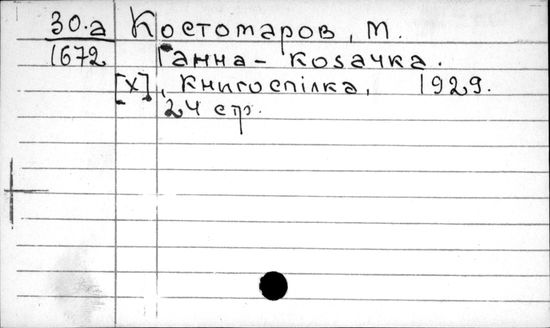 30.а Костомаров, М.
1672 Ганна – козачка.
[Х], Книгоспілка, 1929.
24 стр.